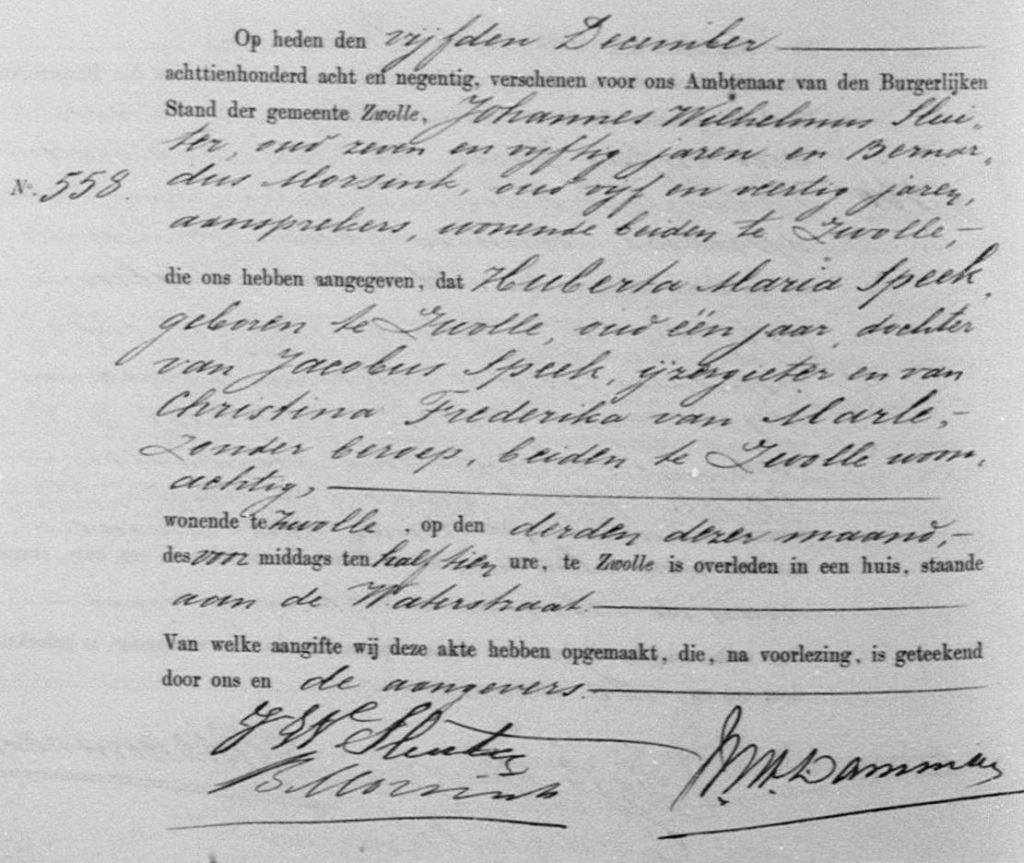 Op heden den vijfden December
achttienhonderd acht en negentig, verschenen voor ons Ambtenaar van den Burgerlijken
Stand der gemeente Zwolle, Johannes Wilhelmus Slui-
ter, oud zeven en vijftig jaren en Bernar-
No. 558.
dus Morsink, oud vijf en veertig jaren,
aansprekers, wonende beiden te Zwolle,
die ons hebben aangegeven, dat Huberta Maria Speek,
geboren te Zwolle, oud één jaar, dochter
van Jacobus Speek, ijzergieter en van
Christina Frederika van Marle,
zonder beroep, beiden te Zwolle woon-
achtig,
wonende te Zwolle, op den derden dezer maand,
des voor middags ten half tien ure, te Zwolle is overleden in een huis, staande
aan de Waterstraat.
Van welke aangifte wij deze akte hebben opgemaakt, die, na voorlezing, is geteekend
door ons en de aangevers.
J W Sluiter
B Morsink
Damman